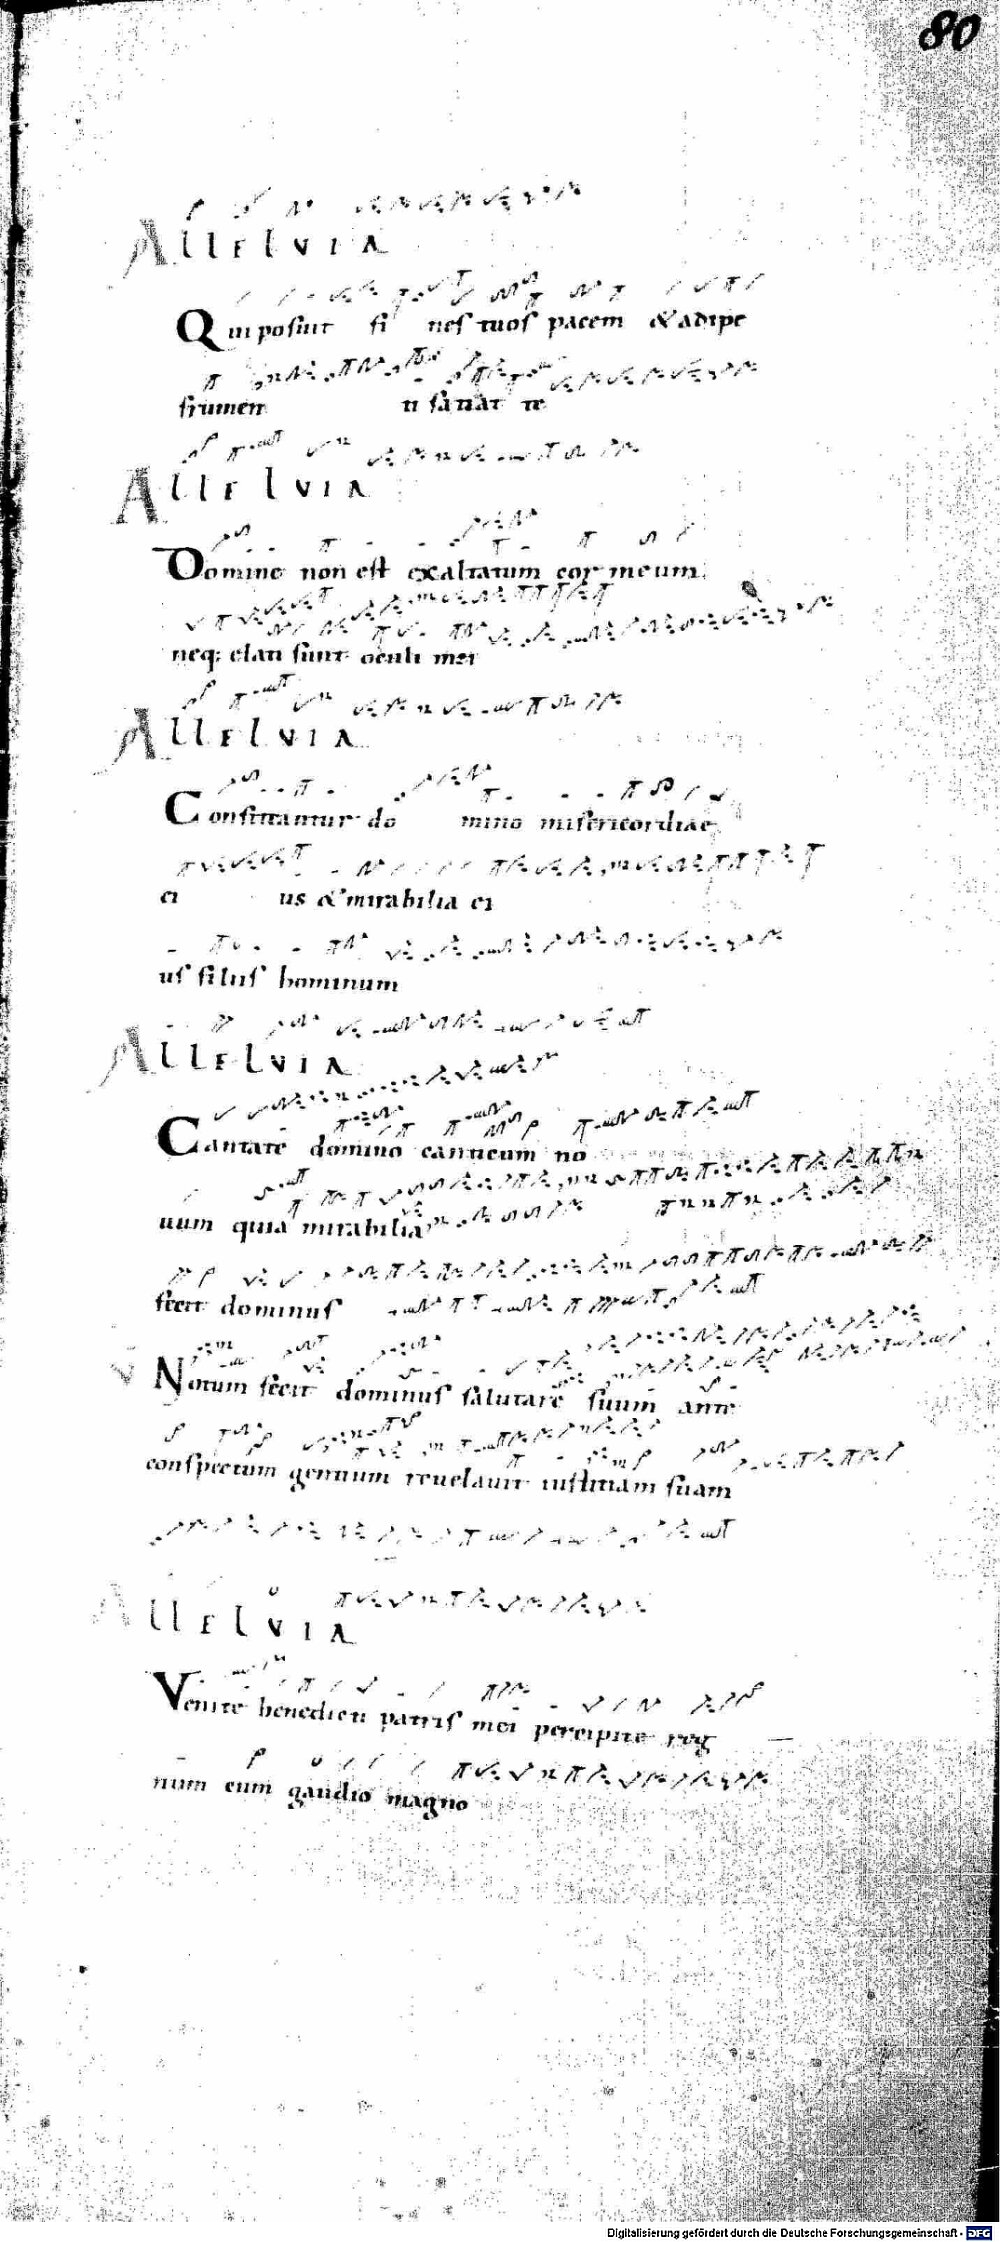 80
ALLELVIA
Qui posuit fi nes tuos pacem & adipe
frumen ti satiat te
ALLELVIA
Domine non est exaltatum cor meum
neq; elati sunt oculi mei
ALLELVIA
Confitantur do mino misericordiae
ei us & mirabilia ei
us filiis hominum
ALLELVIA
Cantate domino canticum no
uum quia mirabilia
fecit dominus
V Notum fecit dominus salutare suum ante
conspectum gentium reuelauit iustitiam suam
ALLELVIA
Venite benedicti patris mei percipite reg
num cum gaudio magno
Digitalisierung gefördert durch die Deutsche Forschungsgemeinschaft - DFG